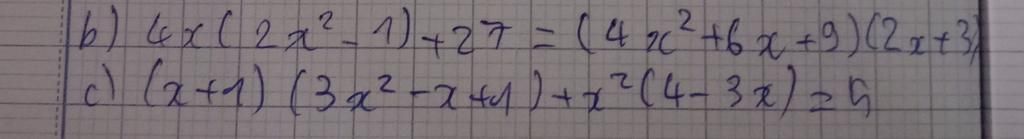 b) 4x(2x² - 1) + 27 = (4x² + 6x + 9)(2x + 3)
c) (x + 1)(3x² - x + 1) + x²(4 - 3x) = 5